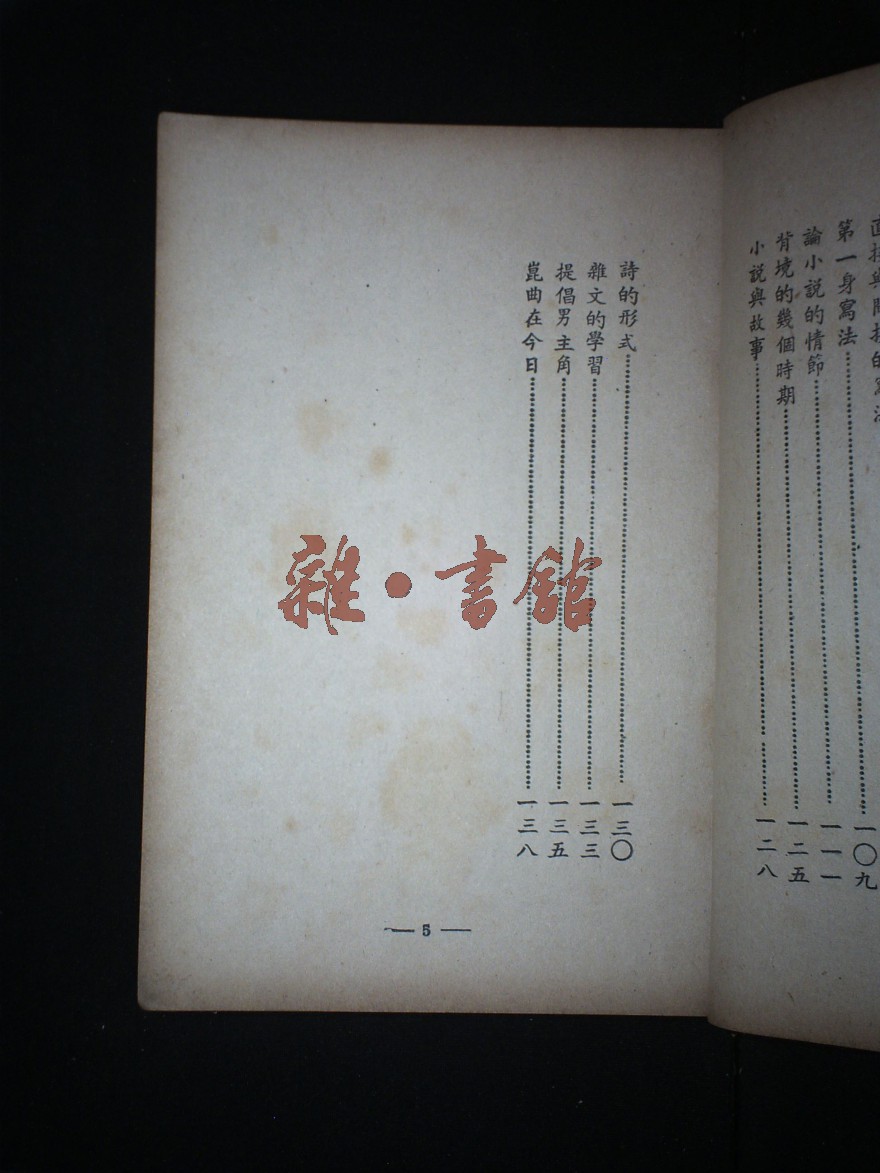 直接與間接的寫法
第一身寫法……一〇九
論小說的情節……一一一
背境的幾個時期……一二五
小說與故事……一二八
詩的形式……一三〇
雜文的學習……一三三
提倡男主角……一三五
崑曲在今日……一三八
— 5 —
雜·書館